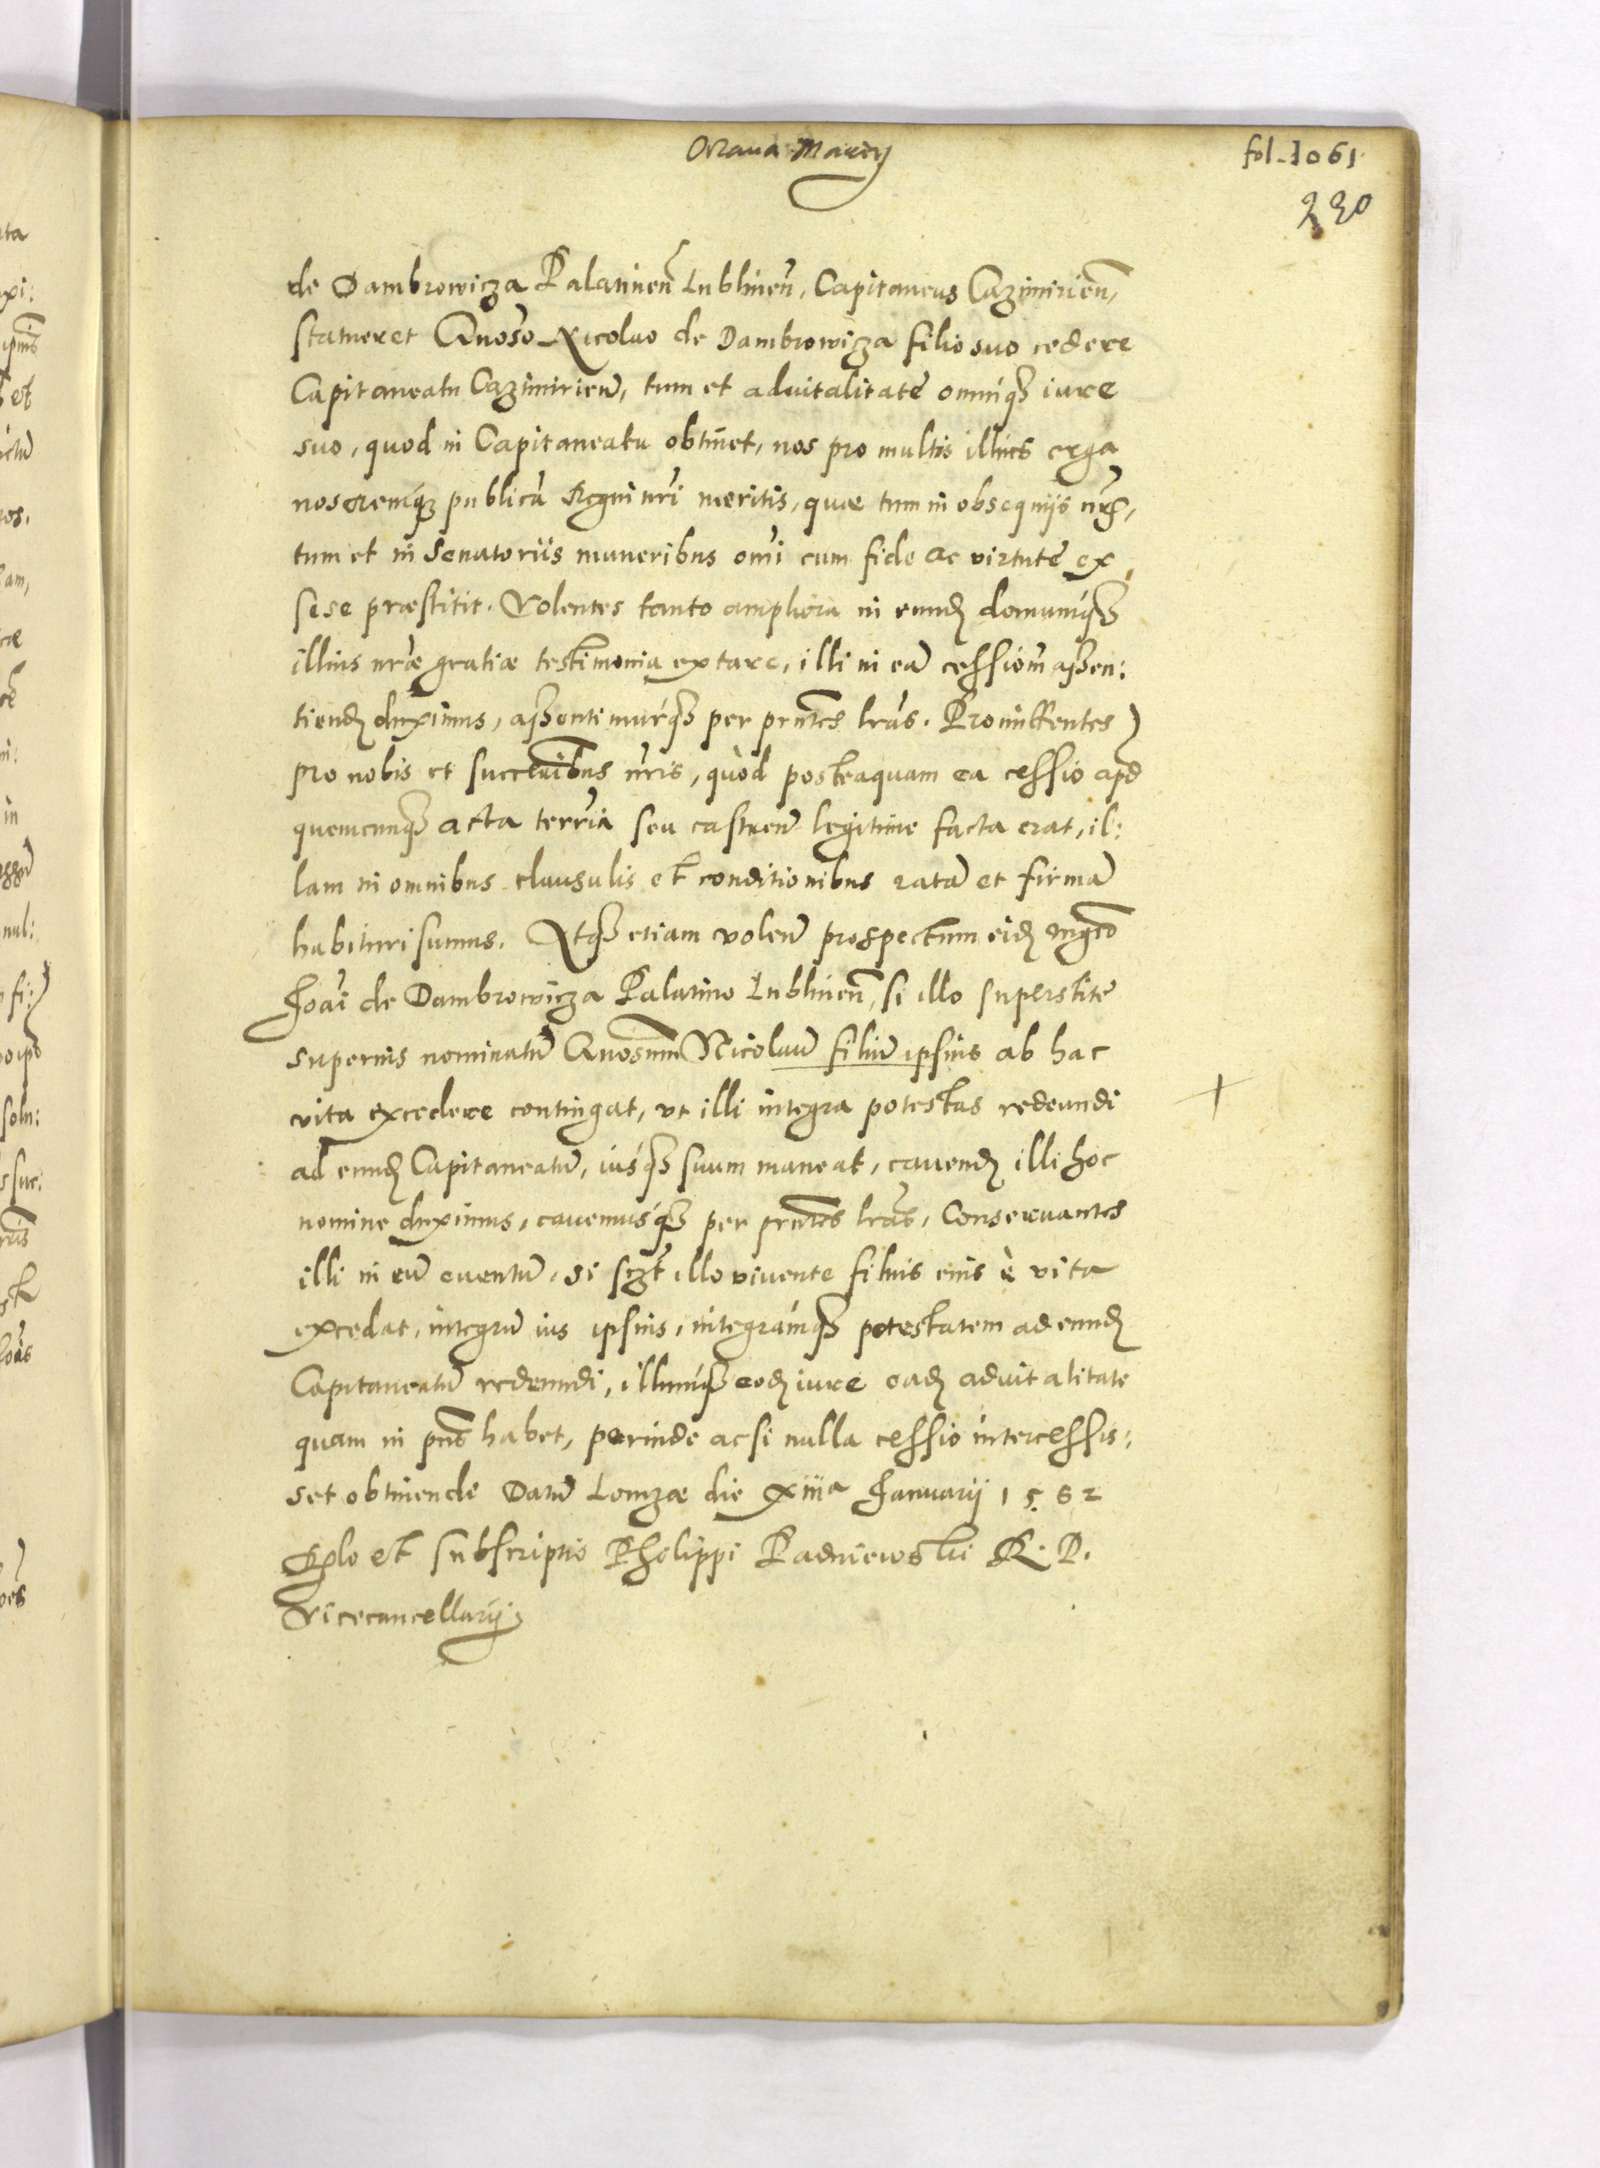 Octaua Marcij
fol. 1061
230
de Dambrowicza Palatinen̄ Lublinen̄, Capitaneus Cazimirien̄,
statueret Gnoso Nicolao de Dambrowicza filio suo cedere
Capitaneatu Cazimirien̄, tum et aduitalitate omniq́ꝫ iure
suo, quod in Capitaneatu obtinet, nos pro multis illius erga
nos remq́ꝫ publicā Regni nr̄i meritis, quæ tum in obsequijs nr̄is,
tum et in Senatoriis muneribus om̄i cum fide ac virtute ex
sese præstitit. Volentes tanto ampliora in eundē domumq́ꝫ
illius nr̄æ gratiæ testimonia extare, illi in eā cessionē assen:
tiendū duximus, assentimurq́ꝫ per pn̄tes lr̄as. Promittentes
pro nobis et succen̄ibus nr̄is, quòd posteaquam ea cessio apud
quæcunqꝫ acta terrīa seu castren̄ legitime facta erat, il:
lam in omnibus clausulis et conditionibus ratā et firmā
habituri sumus. Atqꝫ etiam volen̄ prospectum eidē Mgco
Joāi de Dambrowicza Palatino Lublinen̄, si illo superstite
superius nominatū Gnosum Nicolaū filiū ipsius ab hac
vita excedere contingat, vt illi integra potestas redeundi
ad eundē Capitaneatū, iusq́ꝫ suum maneat, cauendū illi hoc
nomine duximus, cauemusq́ꝫ per pn̄tes lr̄as, Conseruantes
illi in eū euentū, si sczt illo viuente filius eius è vita
excedat, integrū ius ipsius, integramq́ꝫ potestatem ad eundē
Capitaneatū redeundi, illumq́ꝫ eodē iure eadē aduitalitate
quam in pn̄s habet, perinde ac si nulla cessio intercessis:
set obtinende Datū Lomzæ die xiiiª Januarij 1562
Rlo et subscriptio Philippi Padniewski R. P.
Vicecancellarij